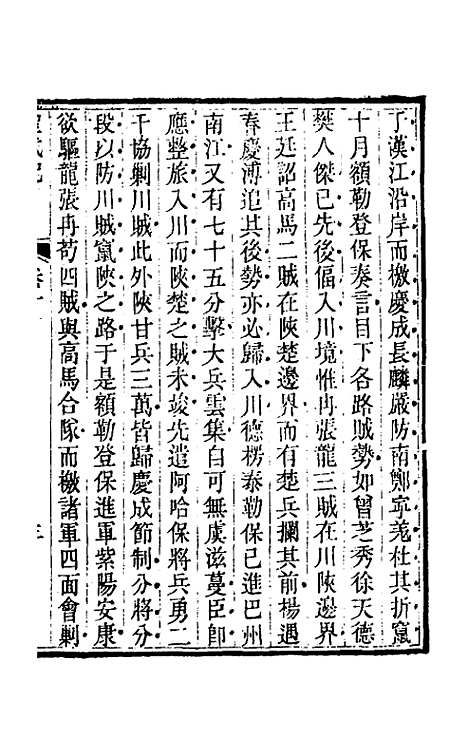 丁漢江沿岸而檄慶成長麟嚴防南鄭寧羌杜其折竄
十月額勒登保奏言目下各路賊勢如曾芝秀徐天德
樊人傑已先後偪入川境惟冉張龍三賊在川陝邊界
王廷詔高馬二賊在陝楚邊界而有楚兵攔其前楊遇
春慶溥追其後勢亦必歸入川德楞泰勒保已進巴州
南江又有七十五分擊大兵雲集自可無虞滋蔓臣卽
應整旅入川而陝楚之賊未竣先遣阿哈保將兵勇二
千協剿川賊此外陝甘兵三萬皆歸慶成節制分將分
段以防川賊竄陝之路于是額勒登保進軍紫陽安康
欲驅龍張冉苟四賊與高馬合隊而檄諸軍四面會剿